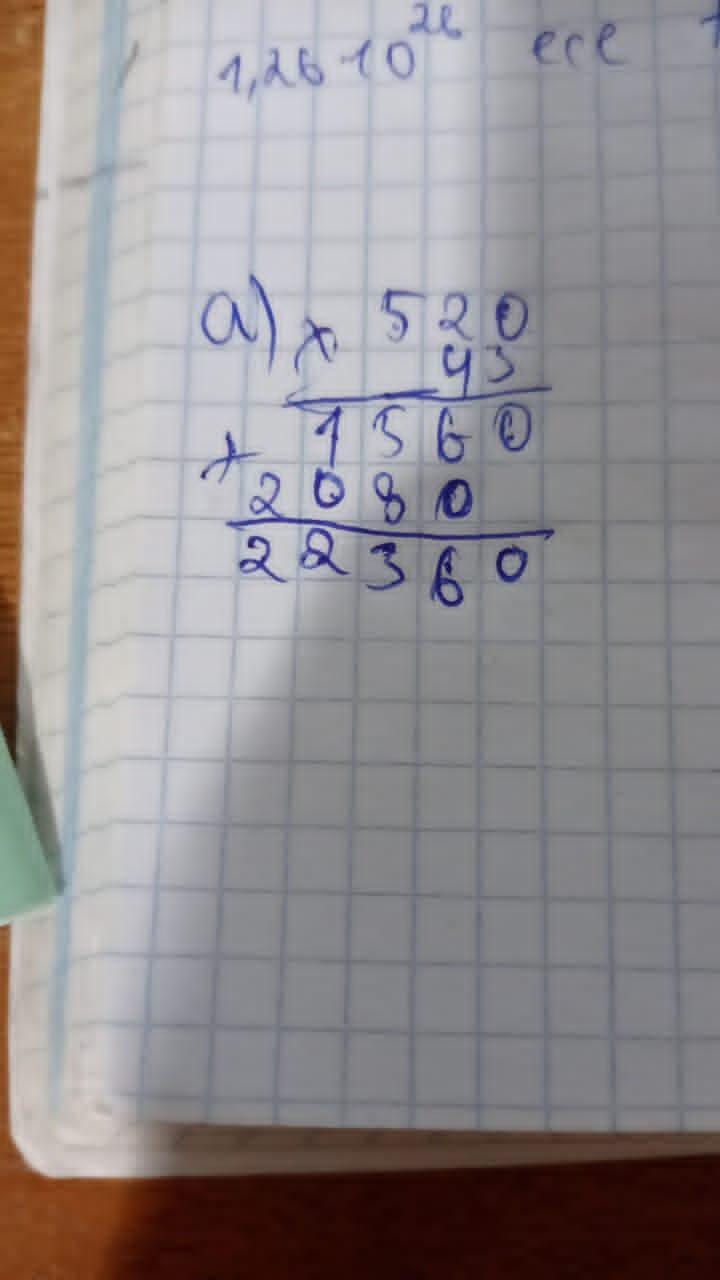 1,26·10²⁶ есе
а) × 520
43
1560
+ 2080
22360